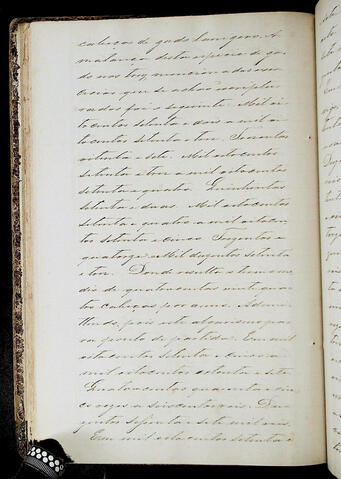 cabeças de gado lanigero. A
matança desta especie de ga-
do nos tres, nunciona dos exer-
cicios que se achão comple-
rados foi a seguinte. Mil oi-
tocentos setenta e dois a mil oi-
tocentos setenta e tres. Trezentos
oitenta e sete. Mil oitocentos
setenta e tres a mil oitocentos
setenta e quatro. Quinhentos
setenta e duas. Mil oitocentos
setenta e quatro a mil oitocen-
tos setenta e cinco. Trezentos e
quatorze. Mil duzentos setenta
e tres. Donde resulta o termo me-
dio de quatrocentos vinte qua-
tro cabeças por anno. Admit-
tindo, pois este algarismo pa-
ra ponto de partida. Em mil
oitocentos setenta e cinco a
mil oitocentos setenta e seis
Quatrocentos quarenta e cin-
co rezes a seiscentos reis. Du-
zentos sessenta e sete mil reis.
Em mil oitocentos setenta e